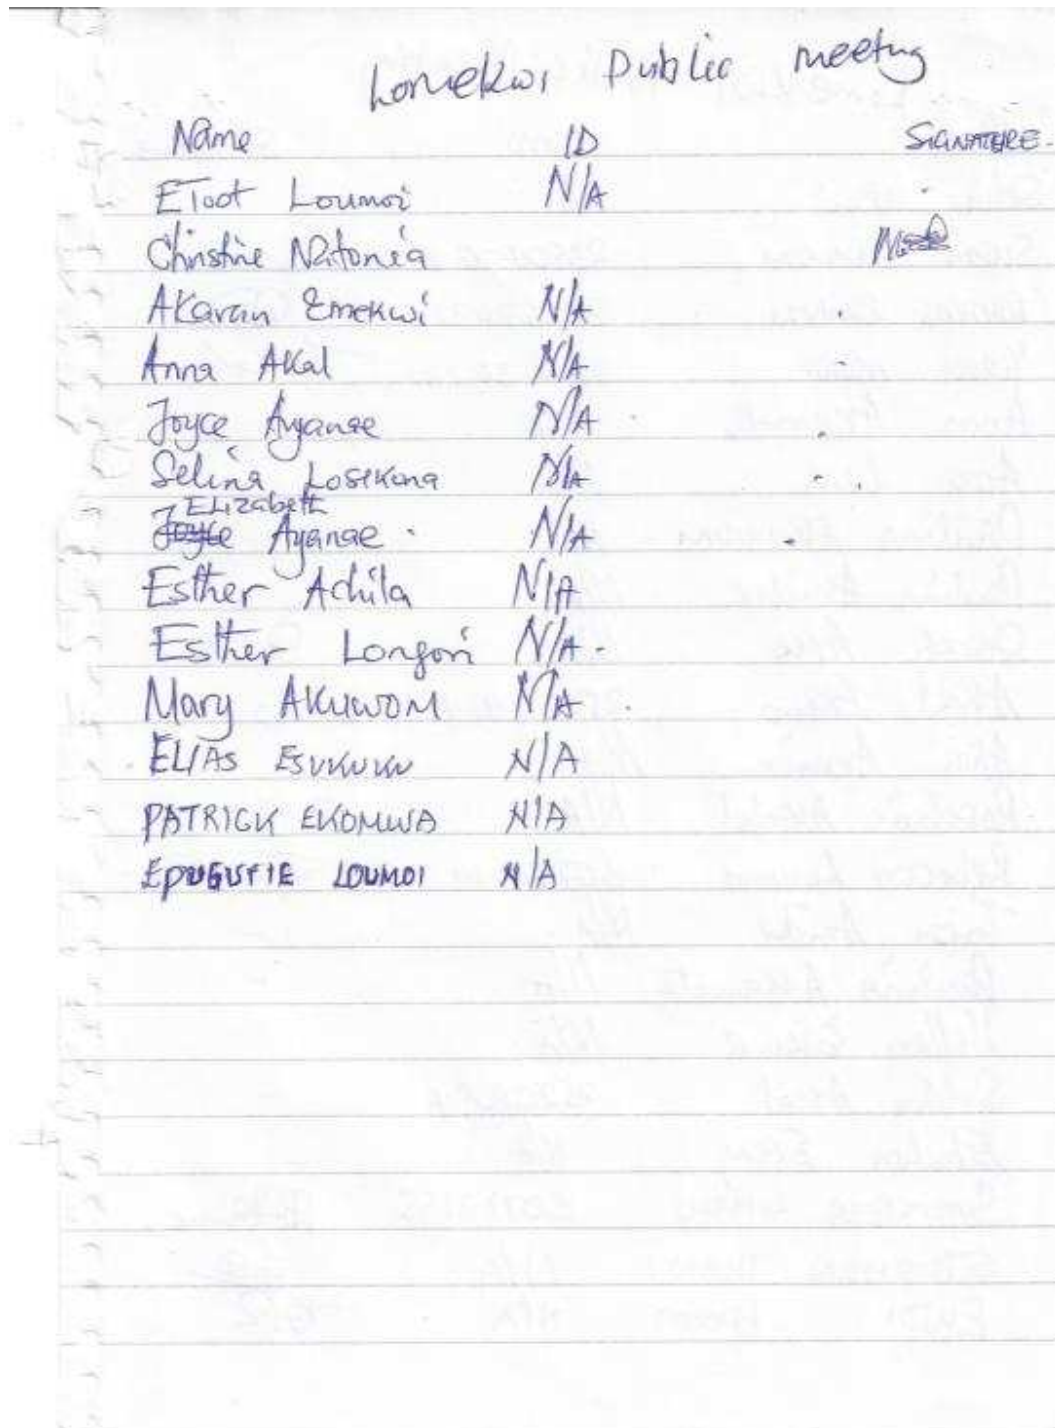 Lomekwi Public meeting
Name ID SIGNATURE.
EToot Loumoi N/A
Christine Natonia
AKaran Emekwi N/A
Anna AKal N/A
Joyce Ayanae N/A
Selina Losikona N/A
Elizabeth
Joyce Ayanae N/A
Esther Achila N/A
Esther Longori N/A
Mary AKuwom N/A
ELIAS ESUKUKU N/A
PATRICK EKOMWA N/A
EPUGUTIE LOUMOI N/A